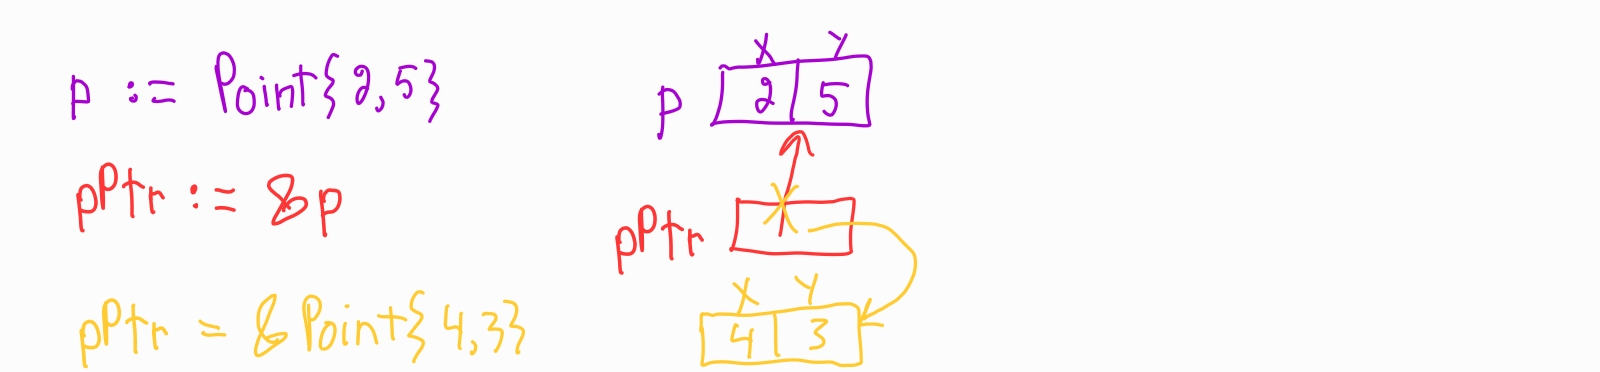 p := Point{2,5}
pPtr := &p
pPtr = &Point{4,3}
X Y
p 2 5
pPtr
X Y
4 3